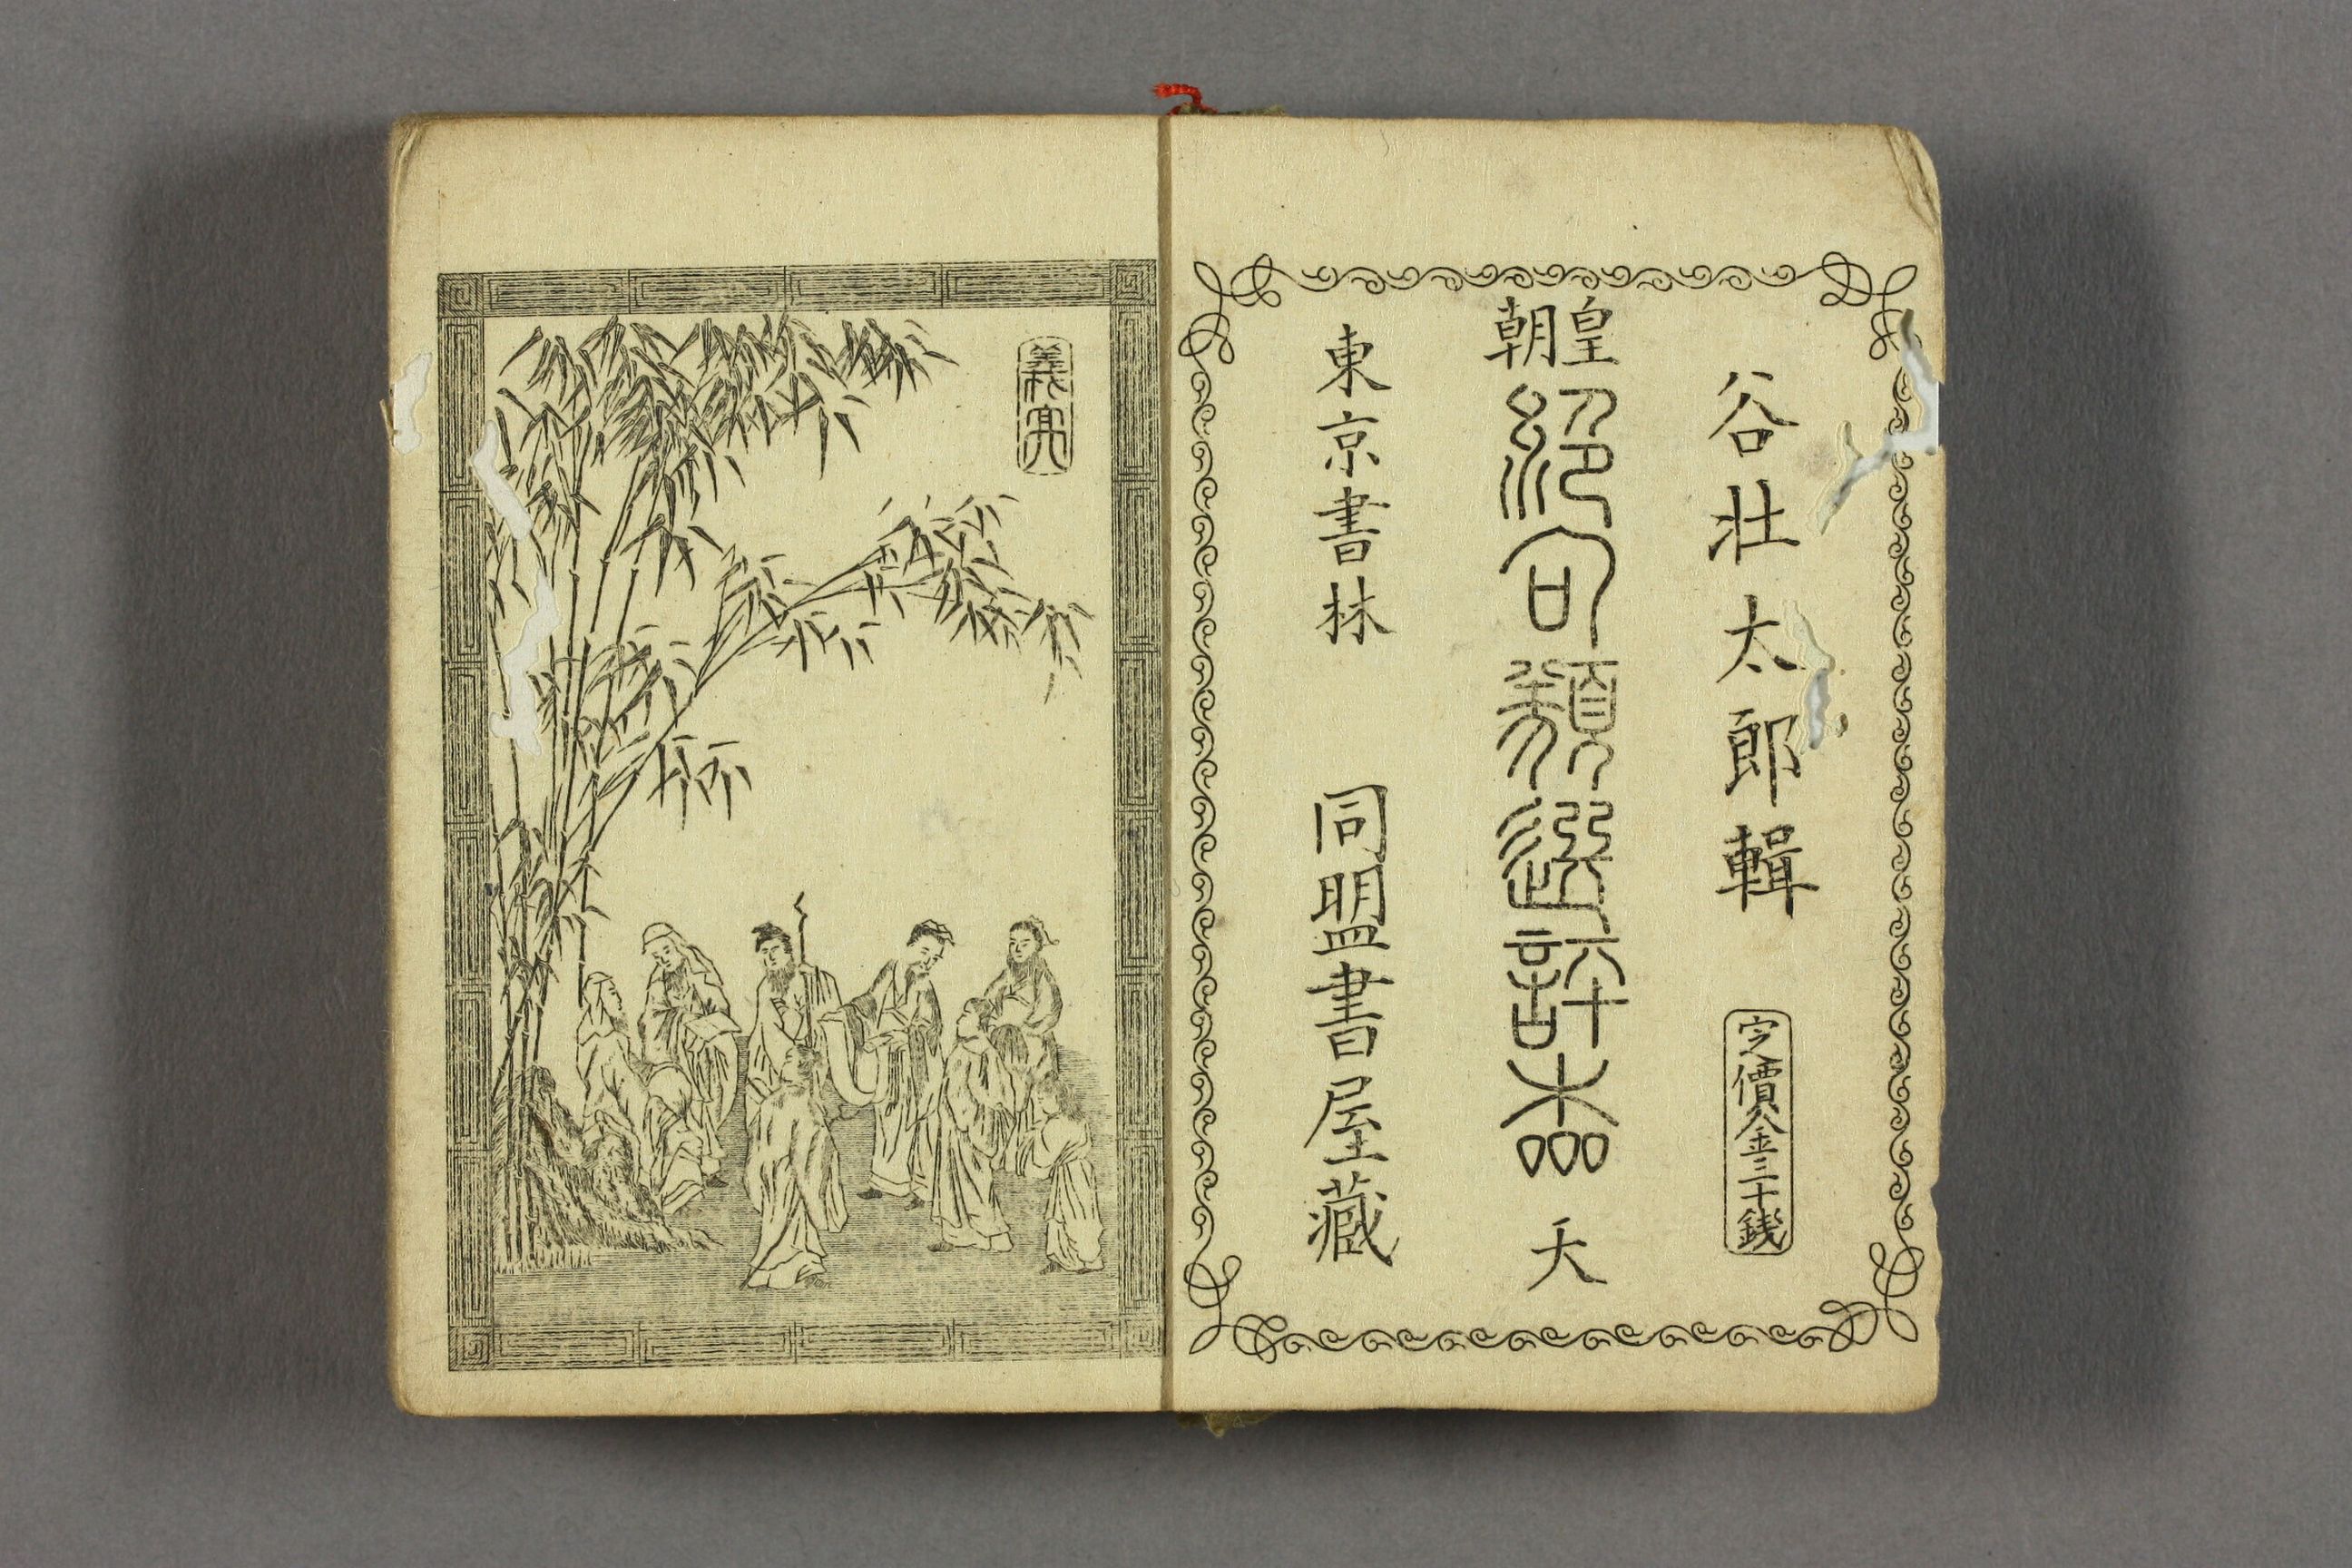 谷壮太郎輯
定價金三十銭
皇朝
絶句類選評本 天
東京書林 同盟書屋藏
義亮